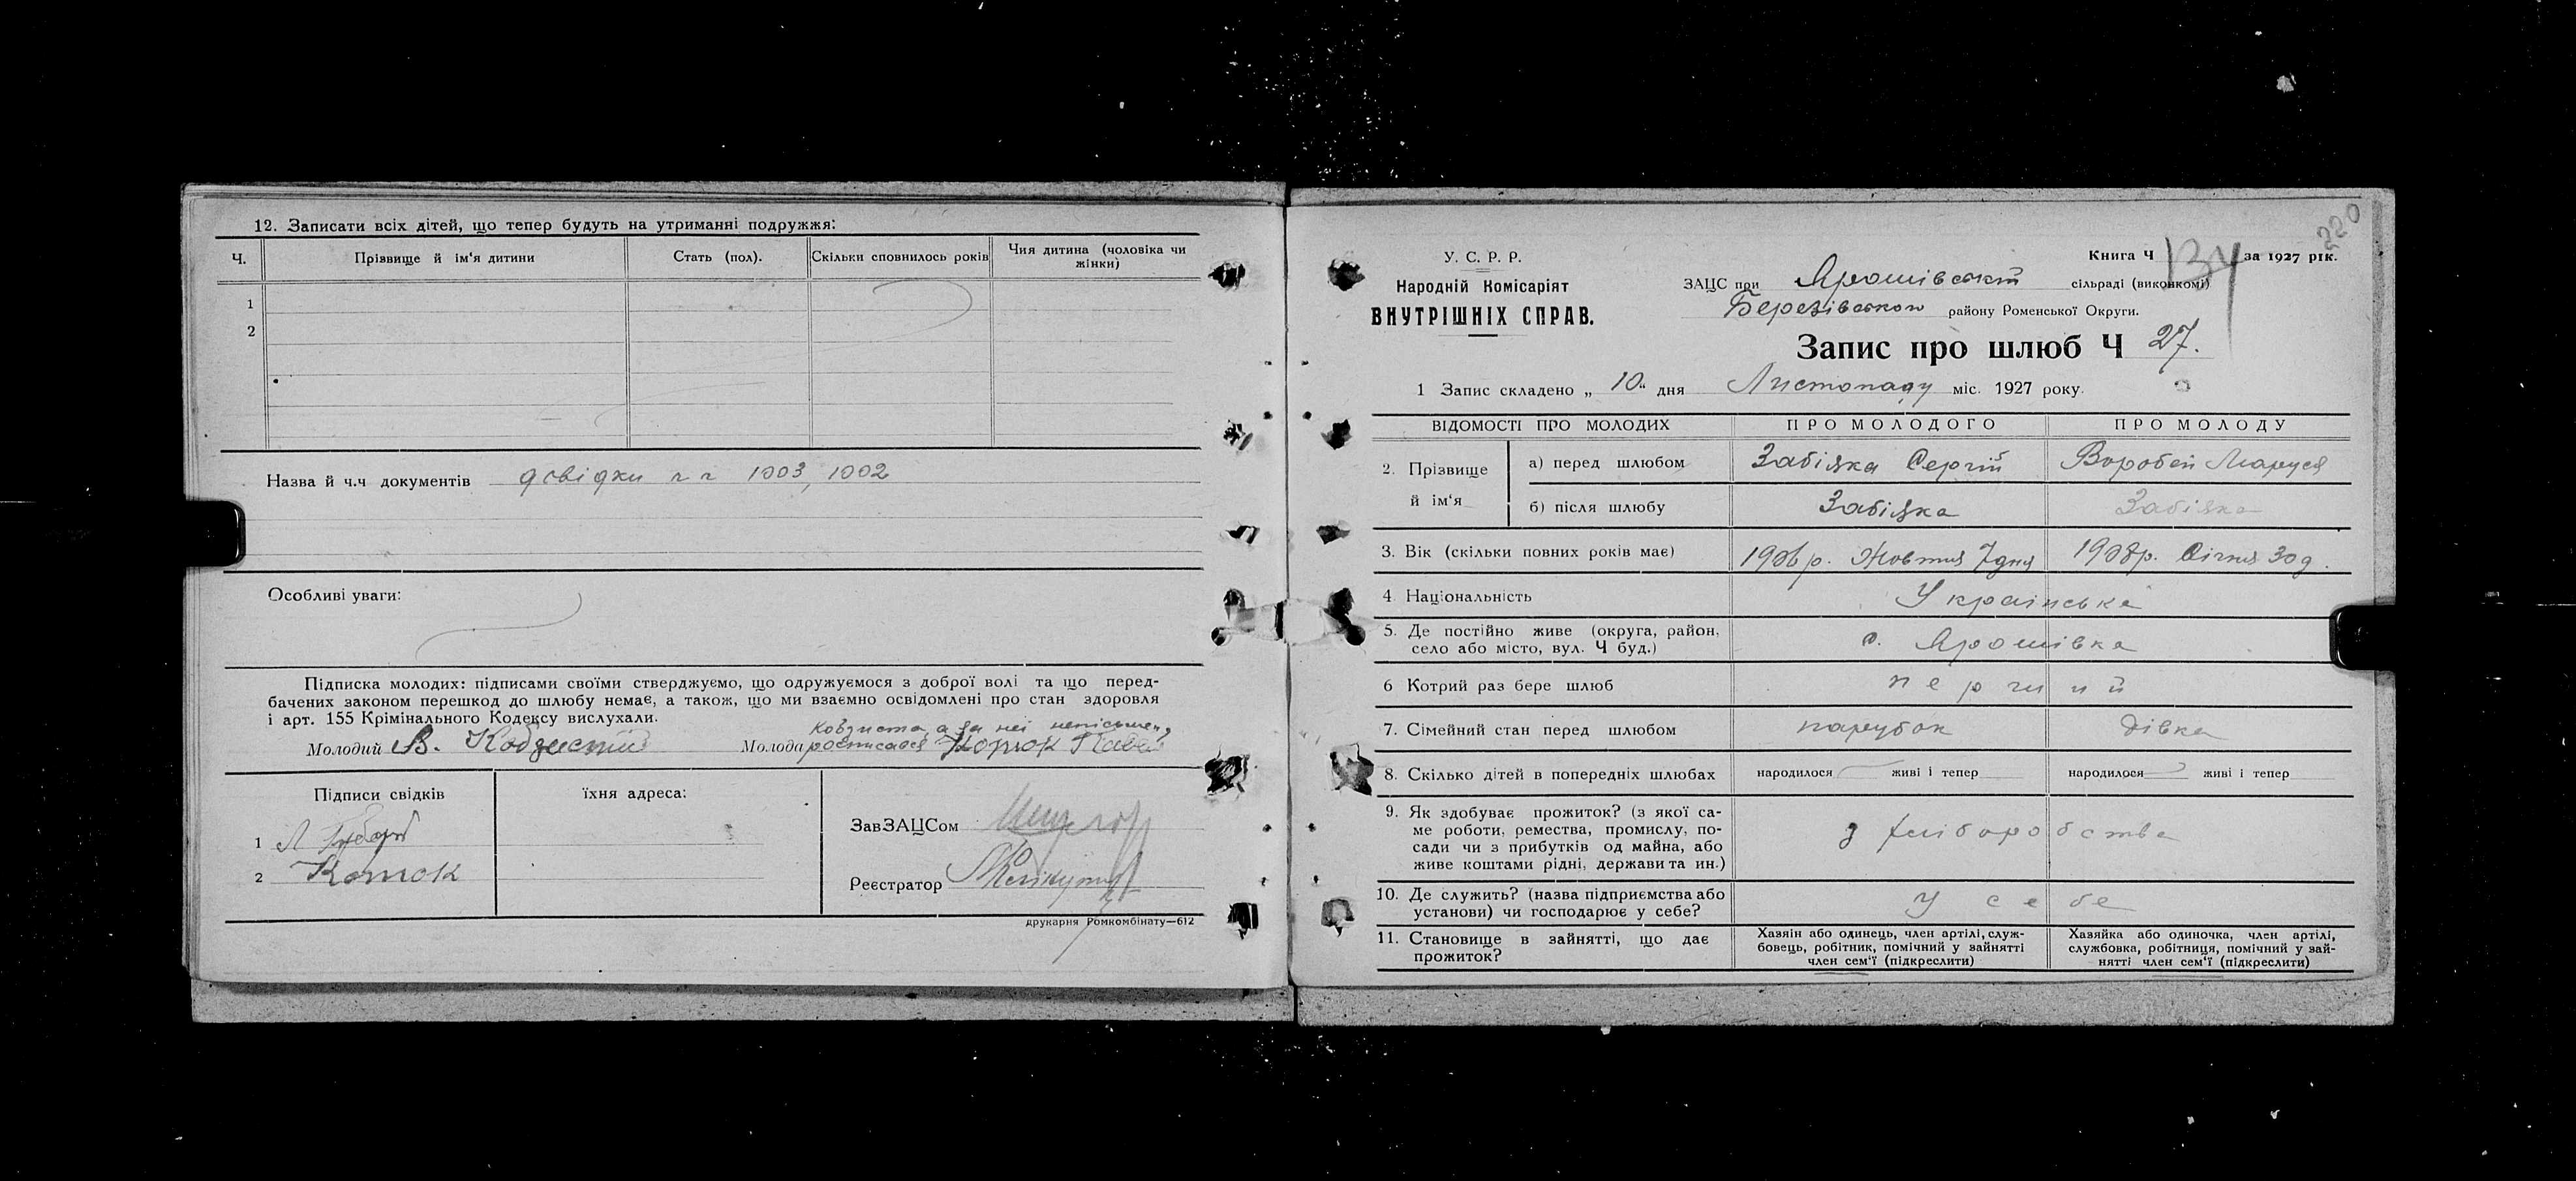 12. Записати всіх дітей, що тепер будуть на утриманні подружжя:
Ч. Прізвище й ім'я дитини Стать (пол). Скільки сповнилось років Чия дитина (чоловіка чи жінки)
1
2
Назва й ч.ч документів досвідки ч ч 1003, 1002
Особливі уваги:
Підписка молодих: підписами своїми стверджуємо, що одружуємося з доброї волі та що перед-
бачених законом перешкод до шлюбу немає, а також, що ми взаємно освідомлені про стан здоровля
і арт. 155 Крімінального Кодексу вислухали.
Ковзиста, а за неї неписьмен,
Молодий В. Кобзистий Молода росписався Комок
Підписи свідків їхня адреса:
ЗавЗАЦСом
1 Л
2 Комок
Реєстратор
друкарня Ромкомбінату—612
220
У. С. Р. Р.
Народній Комісаріят
ВНУТРІШНІХ СПРАВ.
Книга Ч 134 за 1927 рік.
ЗАЦС при Ярошівській сільраді (виконкомі)
Березівського району Роменської Округи.
Запис про шлюб Ч 27.
1 Запис складено „ 10 " дня Листопаду міс. 1927 року.
ВІДОМОСТІ ПРО МОЛОДИХ ПРО МОЛОДОГО ПРО МОЛОДУ
2. Прізвище й ім'я а) перед шлюбом Забіяка Сергій Воробей Маруся
б) після шлюбу Забіяка Забіяка
3. Вік (скільки повних років має) 1906 р. Жовтня 7 дня 1908 р. Січня 30 д.
4 Національність Українська
5. Де постійно живе (округа, район,
село або місто, вул. Ч буд.) с. Ярошівка
6 Котрий раз бере шлюб перший
7. Сімейний стан перед шлюбом парубок дівка
8. Скілько дітей в попередніх шлюбах народилося живі і тепер народилося живі і тепер
9. Як здобуває прожиток? (з якої са-
ме роботи, ремества, промислу, по-
сади чи з прибутків од майна, або
живе коштами рідні, держави та ин.) з хліборобства
10. Де служить? (назва підприємства або
установи) чи господарює у себе? У себе
11. Становище в зайнятті, що дає
прожиток?
Хазяін або одинець, член артілі, служ-
бовець, робітник, помічний у зайнятті
член сем'ї (підкреслити)
Хазяйка або одиночка, член артілі,
службовка, робітниця, помічний у зай-
нятті член сем'ї (підкреслити)